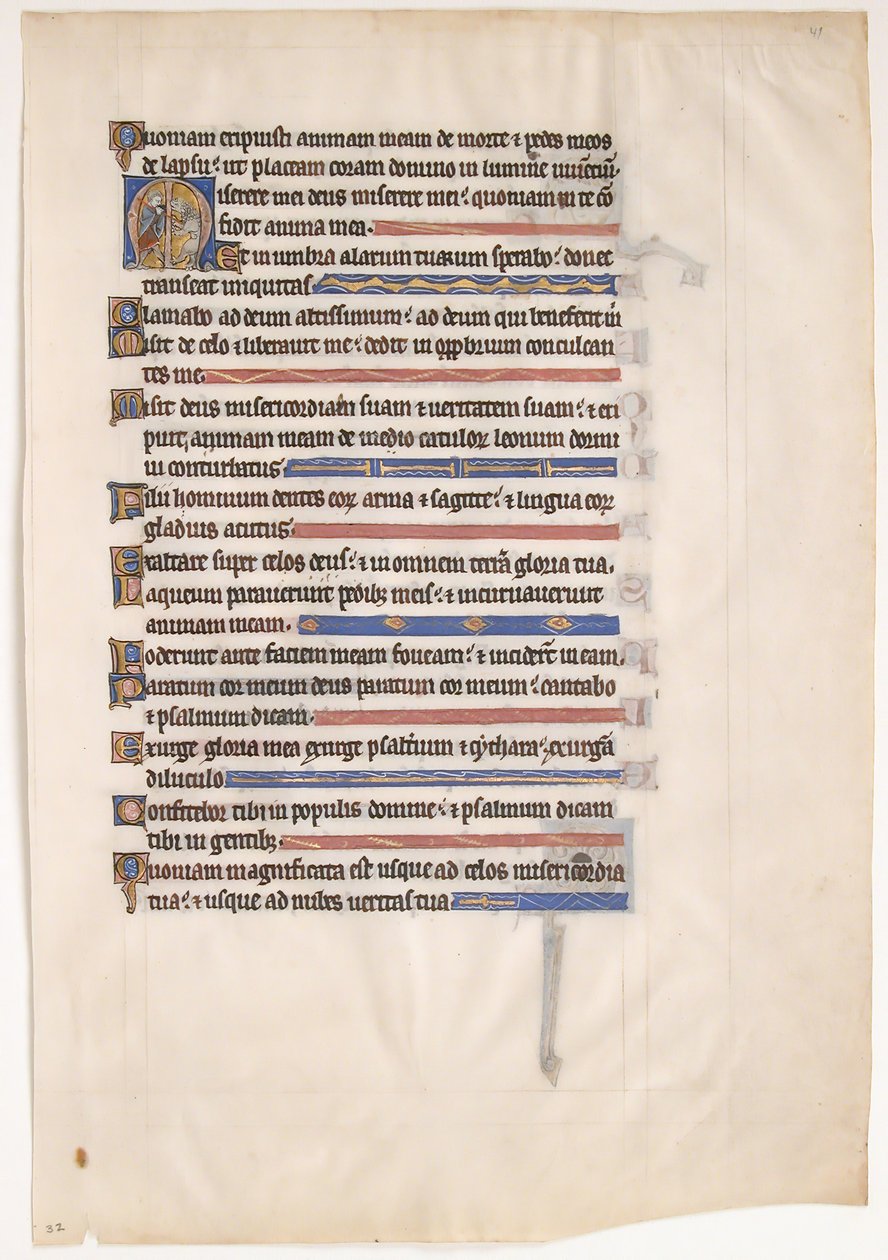 41
Quoniam eripuisti animam meam de morte ⁊ pedes meos
de lapsu: ut placeam coram domino in lumine uiuẽtiũ.
Miserere mei deus miserere mei: quoniam in te cõ
fidit anima mea.
Et in umbra alarum tuarum sperabo: donec
transeat iniquitas.
Clamabo ad deum altissimum: ad deum qui benefecit m̃
Misit de celo ⁊ liberauit me: dedit in opp̃brium conculcan
tes me.
Misit deus misericordiam suam ⁊ ueritatem suam: ⁊ eri
puit animam meam de medio catuloꝝ leonum dormi
ui conturbatus.
Filii hominum dentes eoꝝ arma ⁊ sagitte: ⁊ lingua eoꝝ
gladius acutus.
Exaltare super celos deus: ⁊ in omnem terrã gloria tua.
Laqueum parauerunt pedibꝫ meis: ⁊ incuruauerunt
animam meam.
Foderunt ante faciem meam foueam: ⁊ inciderũt in eam.
Paratum cor meum deus paratum cor meum: cantabo
⁊ psalmum dicam.
Exurge gloria mea exurge psalt̃ium ⁊ cythara: exurgã
diluculo.
Confitebor tibi in populis domine: ⁊ psalmum dicam
tibi in gentibꝫ.
Quoniam magnificata est usque ad celos misericordia
tua: ⁊ usque ad nubes ueritas tua
32